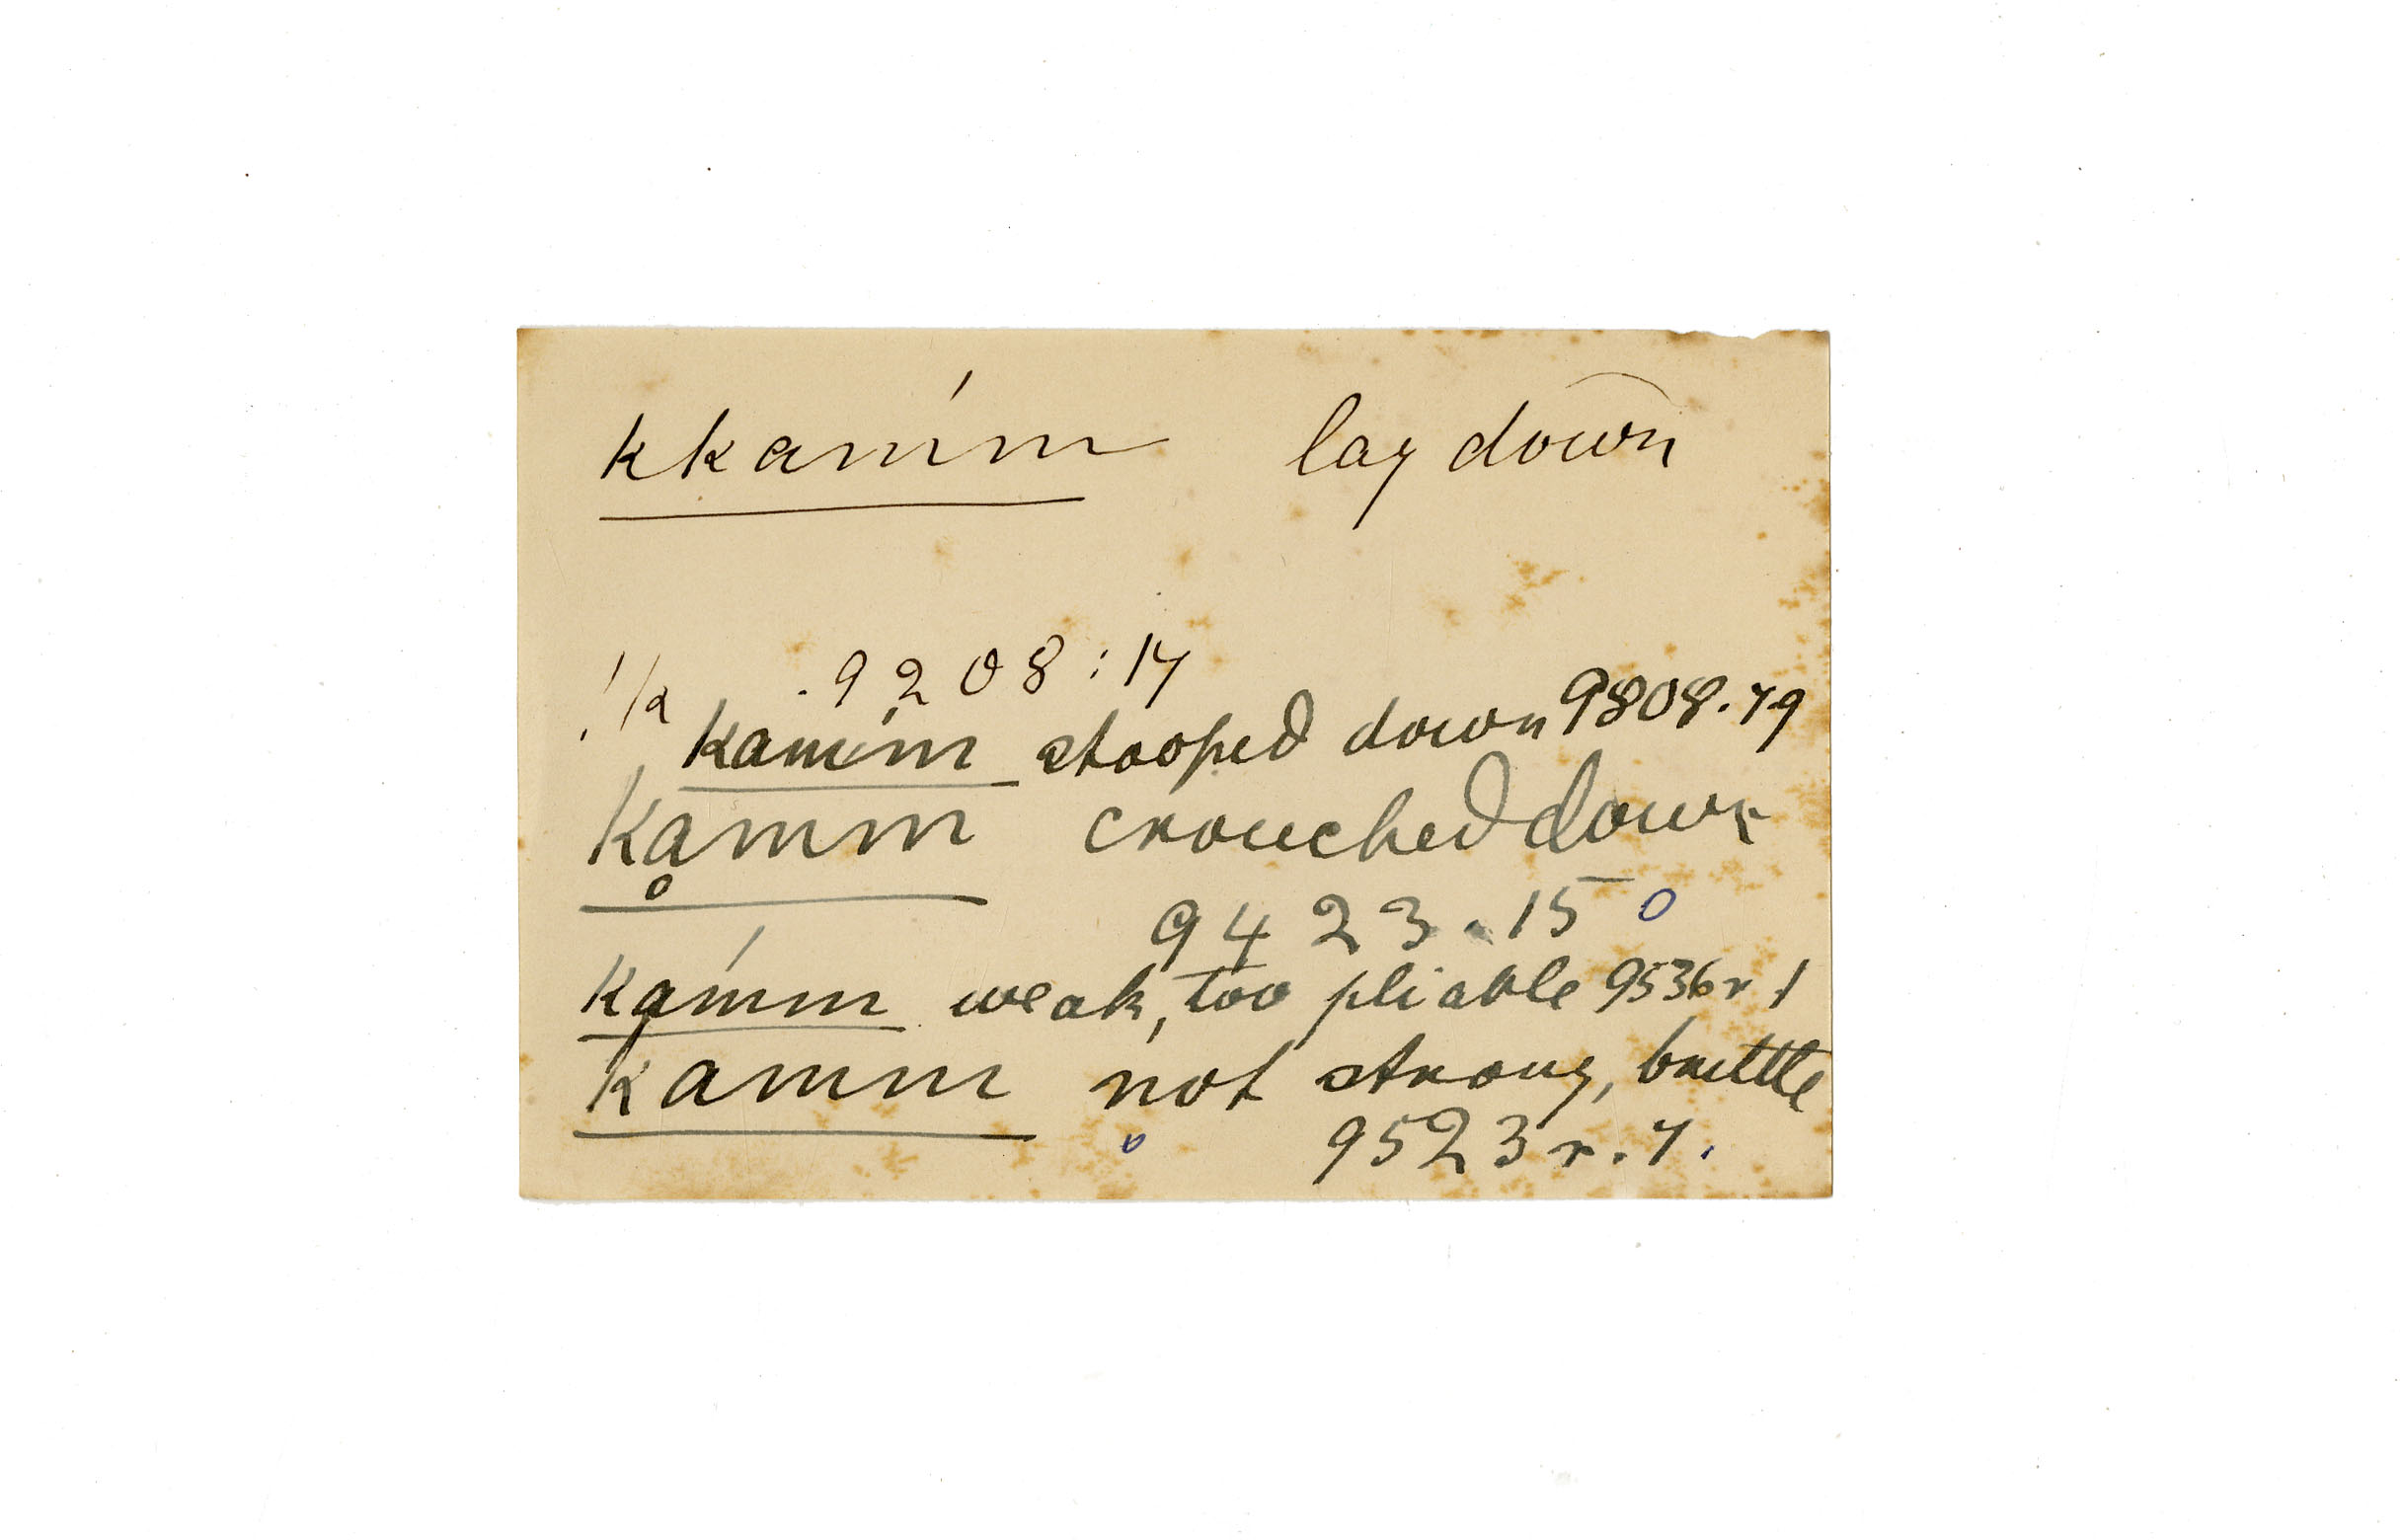 kkamḿ lay down
!/k .9208:17
kamḿ stooped down 9808.79
Kḁmm crouched down
9423.15 o
Kaḿm weak, too pliable 9536r 1
Kamm not strong, brittle
9523r.7.